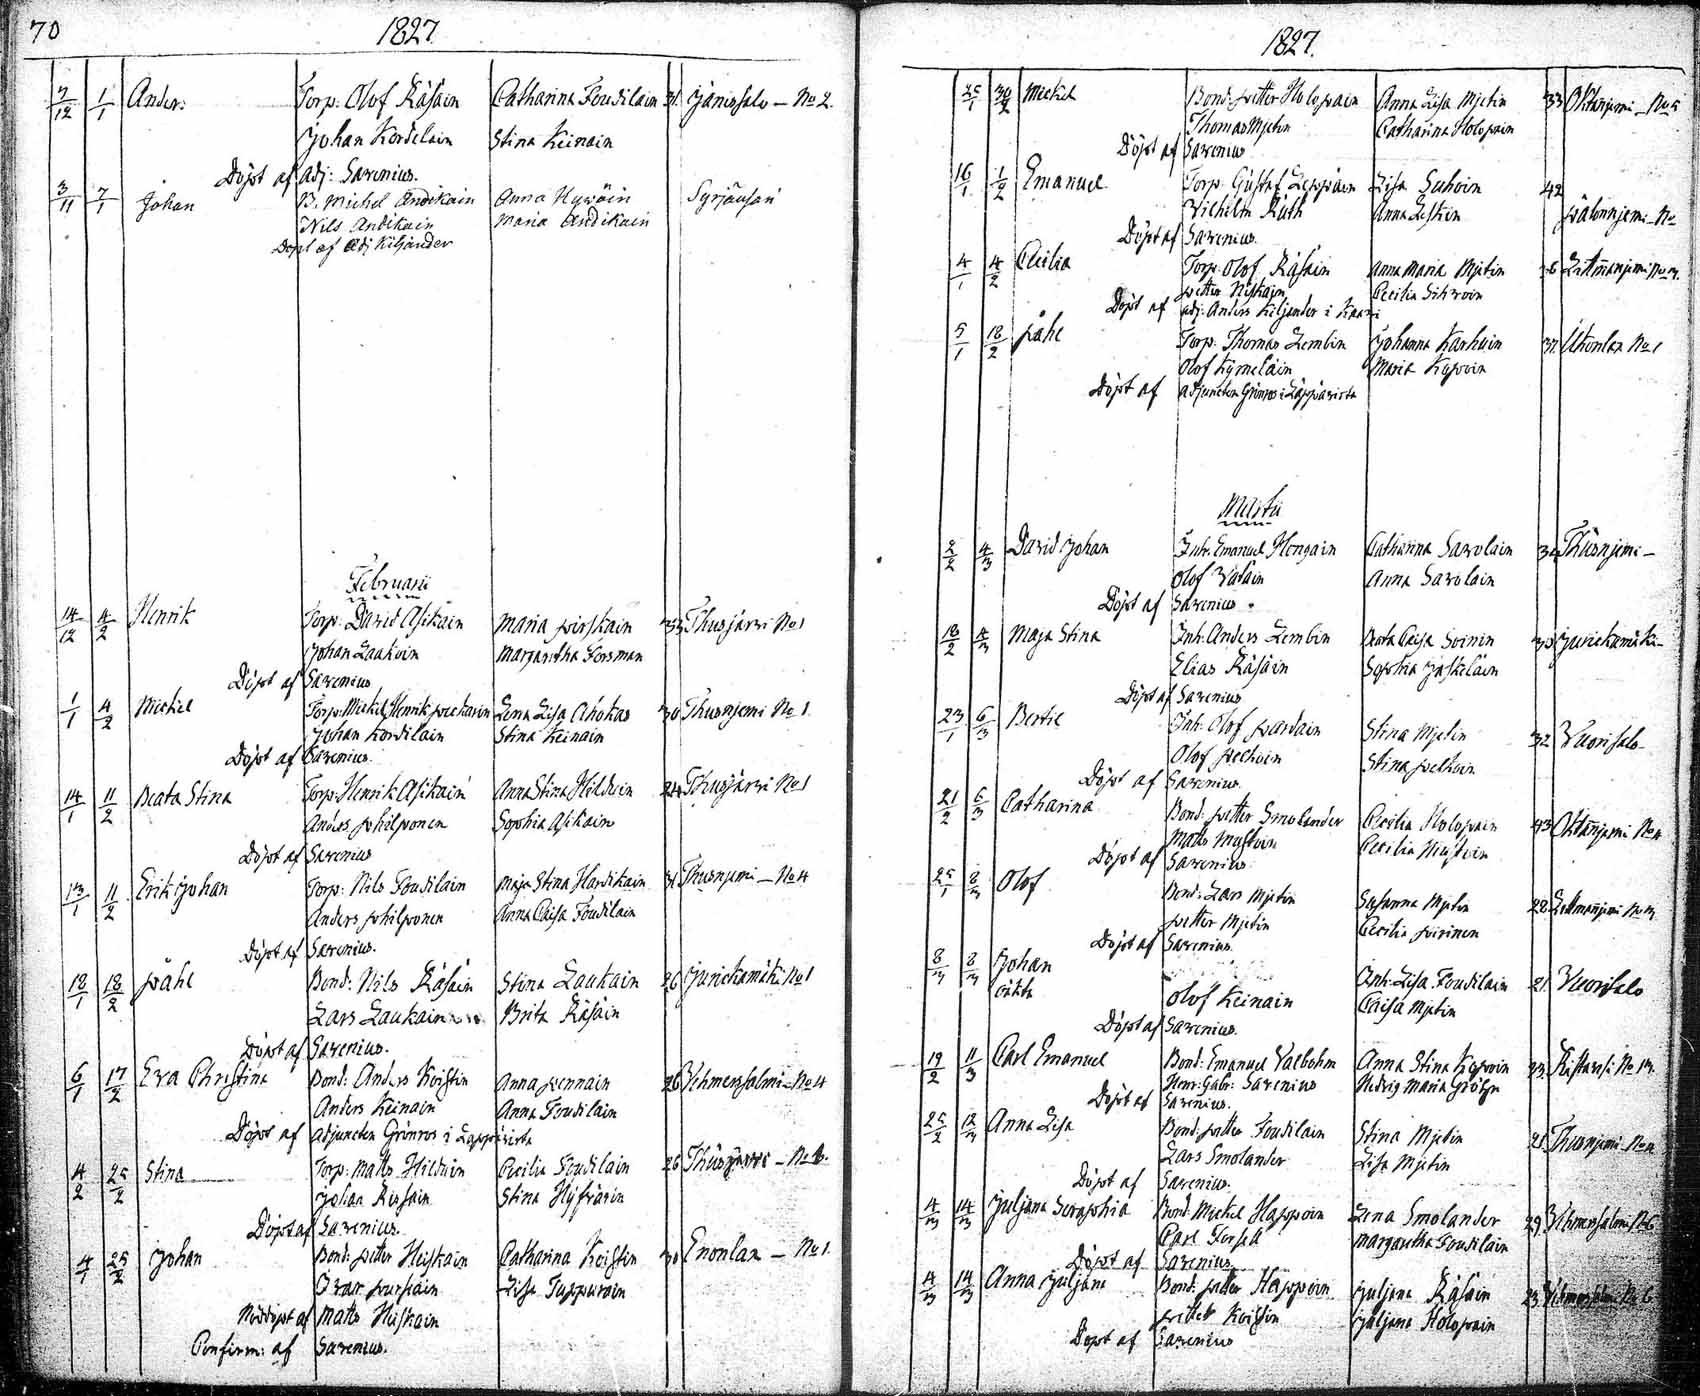 70
1827
7/12 1/1 Anders Torp: Olof Räsäin Catharina Foudilain 31 Jänissalo — No 2.
Johan Kordelain Stina Keinain
Döpt af Adj: Savenius.
3/11 7/1 Johan B. Michel Andikain Anna Hyvöin Syrjäusan
Nils Andikain Maria Andikain
Döpt af Adj Kiljander
Februarii
14/12 4/2 Henrik Torp: David Asikain Maria Pirskain 33 Thusjärvi No 1
Johan Laukain Margaretha Forsman
Döpt af Savenius
1/1 4/2 Michel Torp: Mickel Henrik Peckarin Lena Lisa Ahokas 30 Thusnjemi No 1
Johan Kordilain Stina Keinain
Döpt af Savenius.
14/1 11/2 Beata Stina Torp: Henrik Asikain Anna Stina Hilduin 24 Thusjärvi No 1
Anders Philponen Sophia Asikain
Döpt af Savenius
13/1 11/2 Erik Johan Torp: Nils Foudilain Maja Stina Hardikain 31 Thusnjemi — No 4
Anders Philponen Anna Caisa Foudilain
Döpt af Savenius.
18/1 18/2 Påhl Bond: Nils Räsäin Stina Laukain 26 Jurickamäki No 1
Lars Laukain Brita Räsäin
Döpt af Savenius.
6/1 17/2 Eva Christina Bond: Anders Koistin Anna Pennain 26 Vehmersalmi No 4
Anders Keinain Anna Foudilain
Döpt af Adjuncten Grönroos i Leppävirta
4/2 25/2 Stina Torp: Matts Hilduin Cecilia Foudilain 26 Thusjärvi — No 6.
Johan Räsäin Stina Hyfvärin
Döpt af Savenius.
4/1 25/2 Johan Bond: Petter Heiskain Catharina Koistin 30 Enonlax — No 1.
Ivar Pursiain Lisa Tuppurain
Nöddöpt af Matts Heiskain
Confirm: af Savenius.
1827.
25/1 30/2 Mickel Bond: Petter Holopain Anna Lisa Mjetin 33 Oktanjemi No 5
Thomas Mjetin Catharina Holopain
Döpt af Savenius
16/1 1/2 Emanuel Torp: Gustaf Leppäin Lisa Suhoin 42
Vilhelm Ruth Anna Lestin Pälonnjemi No
Döpt af Savenius.
4/1 4/2 Cecilia Torp: Olof Räsäin Anna Maria Mjetin 36 Littmanjemi No 3.
Petter Niskain Cecilia Sihvoin
Döpt af Adj: Anders Kiljander i Kaavi
5/1 18/2 Påhl Torp: Thomas Lembin Johanna Karhuin 37 Ukonlax No 1
Olof Kymeläin Maria Kypoin
Döpt af Adjuncten Grönroos i Läppävirta
Martii
2/2 4/3 David Johan Inh: Emanuel Hengain Catharina Savolain 34 Thusnjemi —
Olof Anna Savolain
Döpt af Savenius.
18/2 4/3 Maja Stina Inh: Anders Lembin Beata Caisa Soinin 30 Jurickamäki
Elias Räsäin Sophia Jäskeläin
Döpt af Savenius
23/1 6/3 Bertil Inh: Olof Pardain Stina Mjetin 32 Vuorisalo
Olof Pelkoin Stina Pelkoin
Döpt af Savenius.
21/2 6/3 Catharina Bond: Petter Smolander Cecilia Holopain 43 Oktanjemi No 4
Matts Mustoin Cecilia Mustoin
Döpt af Savenius
25/1 8/3 Olof Bond: Lars Mjetin Susanna Mjetin 28 Littmanjemi No 3
Petter Mjetin Cecilia Pirinen
Döpt af Savenius.
8/3 8/3 Johan Inh: Lisa Foudilain 21 Vuorisalo
oäkta Olof Keinain Caisa Mjetin
Döpt af Savenius.
19/2 11/3 Carl Emanuel Bond: Emanuel Valbohm Anna Stina Kypoin 23 Ristavesi No 13.
Henr: Gabr: Savenius Hedvig Maria Gröhn
Döpt af Savenius.
25/2 12/3 Anna Lisa Bond: Petter Foudilain Stina Mjetin 21 Thusnjemi No 4
Lars Smolander Lisa Mjetin
Döpt af Savenius.
4/3 14/3 Juljana Seraphia Bond: Mickel Happoin Lena Smolander 29 Vehmersalmi No 6
Carl Forsell Margaretha Foudilain
Döpt af Savenius
4/3 14/3 Anna Juljana Bond: Petter Happoin Juljana Räsäin 23 Vehmersalmi No 6
Petter Koistin Juljana Holopain
Döpt af Savenius